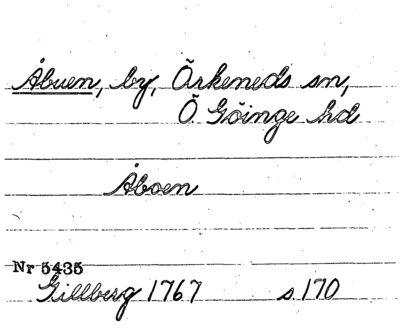 Åbuen, by, Örkeneds sn,
Ö. Göinge hd
Åboen
Nr 5435
Gillberg 1767 s. 170